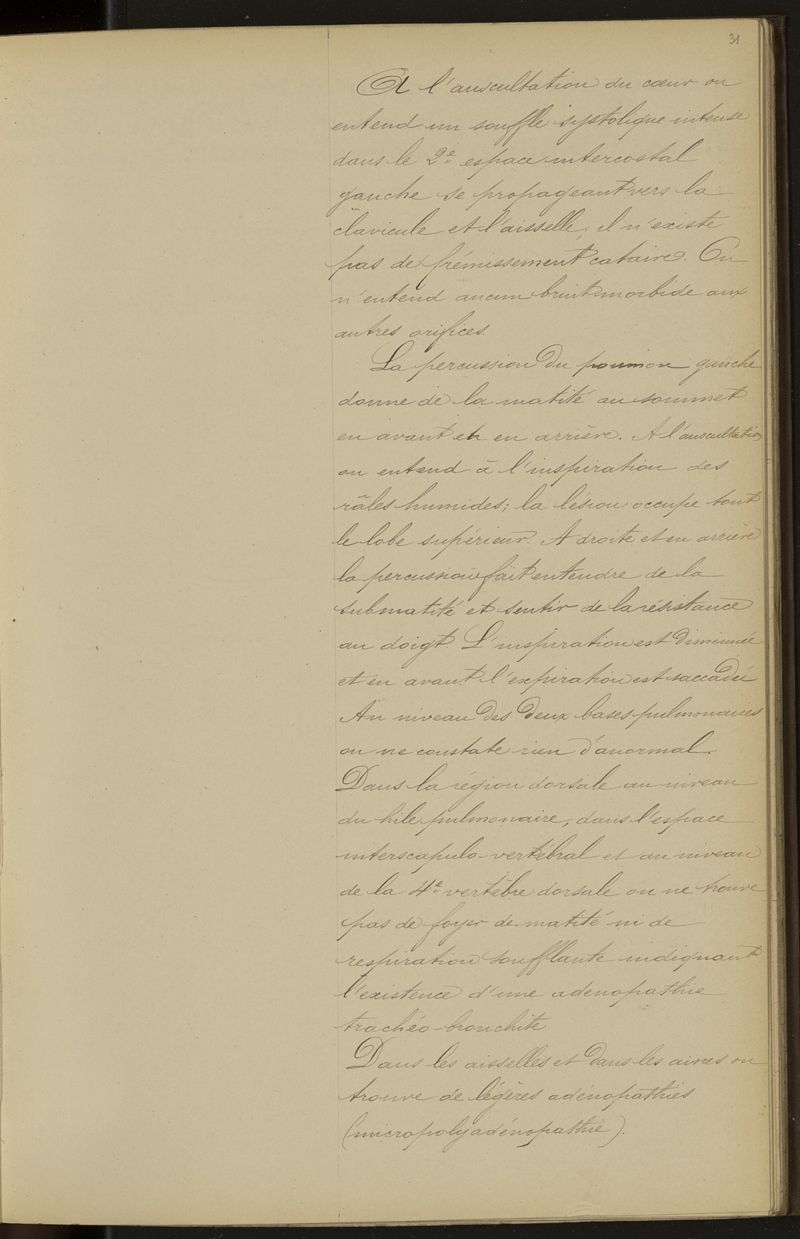 31
A l'auscultation du cœur on
entend un souffle systolique intense
dans le 2e espace intercostal
gauche se propageant vers la
clavicule et l'aisselle; il n'existe
pas de frémissement cataire. On
n'entend aucun bruit morbide aux
autres orifices.
La percussion du poumon gauche
donne de la matité au sommet
en avant et en arrière. A l'auscultation
on entend à l'inspiration des
râles humides; la lésion occupe tout
le lobe supérieur. A droite et en arrière
la percussion fait entendre de la
submatité et sentir de la résistance
au doigt L'inspiration est diminuée
et en avant l'expiration est saccadée
Au niveau des deux bases pulmonaires
on ne constate rien d'anormal.
Dans la région dorsale au niveau
du hile pulmonaire, dans l'espace
interscapulo-vertébral et au niveau
de la 4e vertèbre dorsale on ne trouve
pas de foyer de matité ni de
respiration soufflante indiquant
l'existence d'une adénopathie
trachéo-bronchite
Dans les aisselles et dans les aines on
trouve de légères adénopathies
(micropolyadénopathie).